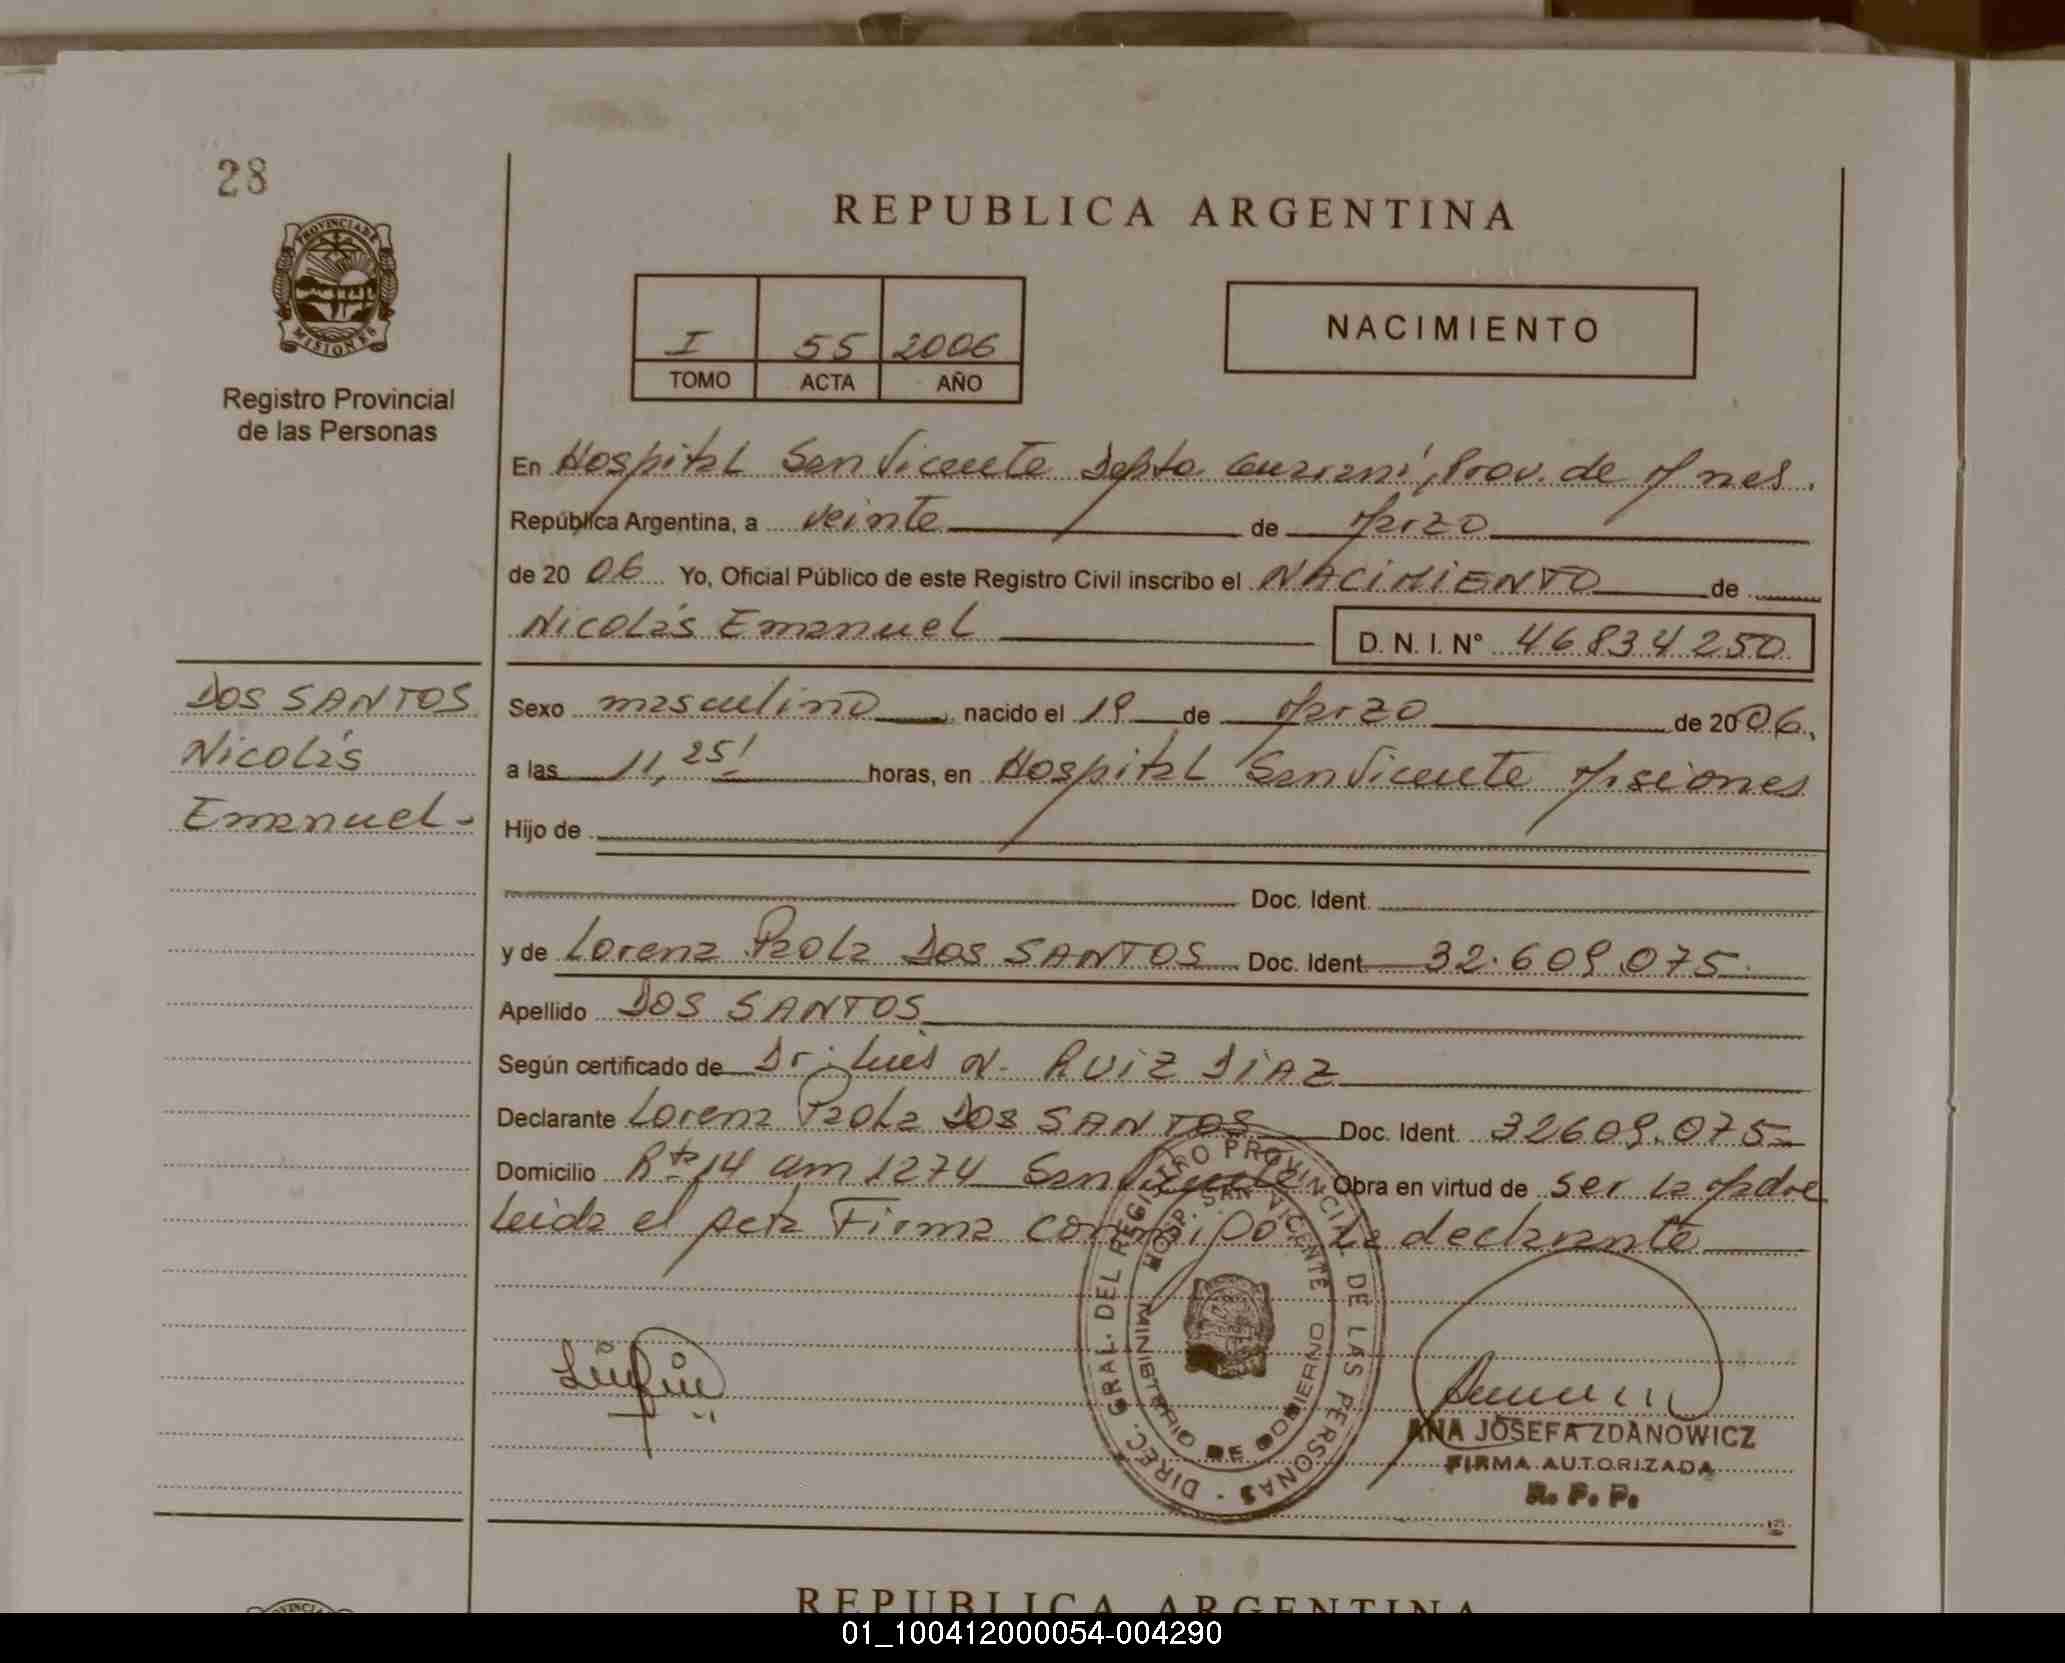 28
REPUBLICA ARGENTINA
PROVINCIA DE
MISIONES
Registro Provincial
de las Personas
I 55 2006
TOMO ACTA AÑO
NACIMIENTO
En Hospital San Vicente Depto. Guaraní, Prov. de Mnes.
República Argentina, a veinte de Marzo
de 2006 Yo, Oficial Público de este Registro Civil inscribo el NACIMIENTO de
Nicolás Emanuel D. N. I. N° 46834250
DOS SANTOS
Nicolás
Emanuel-
Sexo masculino, nacido el 19 de Marzo de 2006,
a las 11,25' horas, en Hospital San Vicente Misiones
Hijo de
Doc. Ident.
y de Lorena Paola DOS SANTOS Doc. Ident. 32.609.075.
Apellido DOS SANTOS
Según certificado de Dr. Luis N. RUIZ DIAZ
Declarante Lorena Paola DOS SANTOS Doc. Ident. 32609.075
Domicilio Rta 14 am 1274 San Vicente Obra en virtud de ser la Madre
Leida el Acta Firma conmigo la declarante
DIREC. GRAL. DEL REGISTRO PROVINCIAL DE LAS PERSONAS
HOSP. SAN VICENTE
MINISTERIO DE GOBIERNO
ANA JOSEFA ZDANOWICZ
FIRMA AUTORIZADA
R. P. P.
REPUBLICA ARGENTINA
01_100412000054-004290